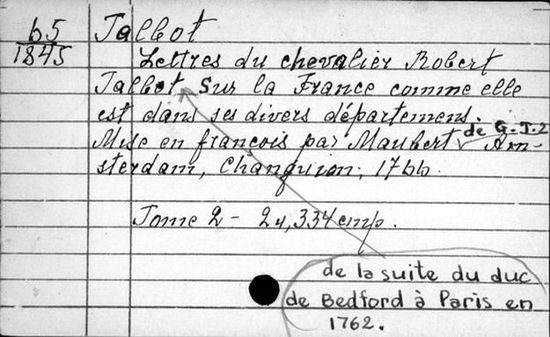 b5
1845
Talbot
Lettres du chevalier Robert
Talbot sur la France comme elle
est dans ses divers départemens.
Mise en françois par Maubert de G-T.2 Am-
sterdam, Changuion, 1766.
Tome 2 - 2 ч, 334 emp.
de la suite du duc
de Bedford à Paris en
1762.